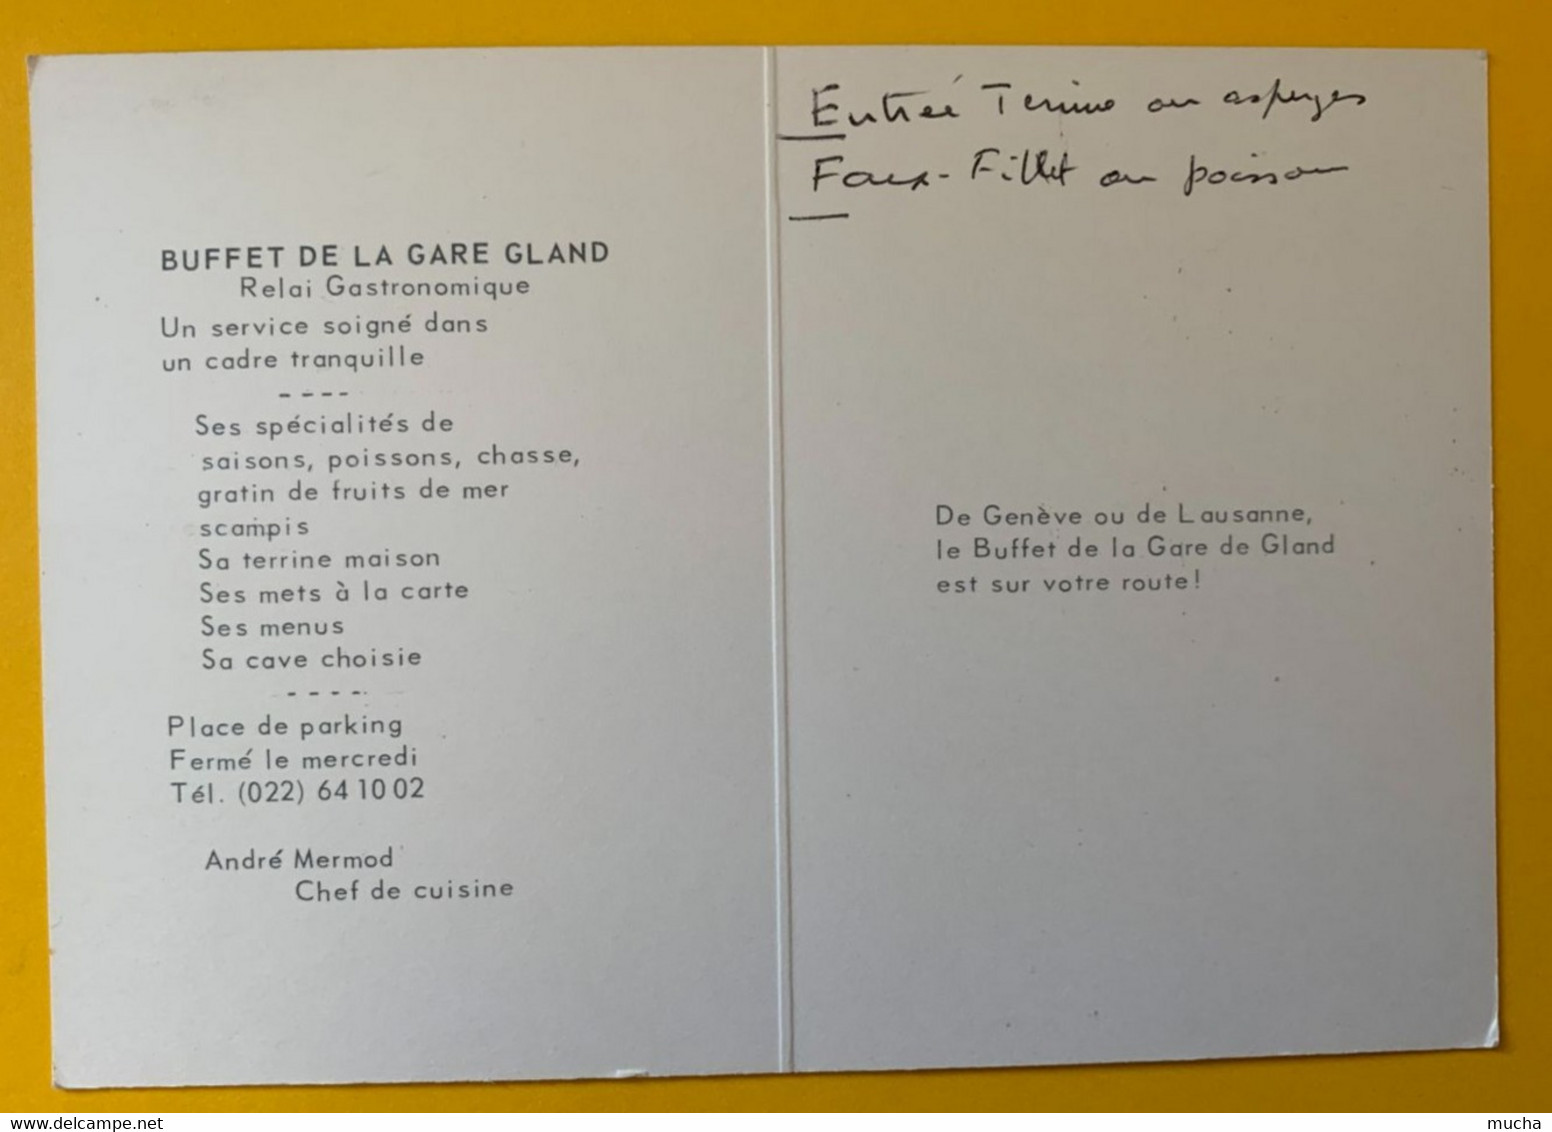 BUFFET DE LA GARE GLAND
Relai Gastronomique
Un service soigné dans
un cadre tranquille
----
Ses spécialités de
saisons, poissons, chasse,
gratin de fruits de mer
scampis
Sa terrine maison
Ses mets à la carte
Ses menus
Sa cave choisie
----
Place de parking
Fermé le mercredi
Tél. (022) 64 10 02
André Mermod
Chef de cuisine
Entreé Terrine ou asperges
Faux-Fillet ou poisson
De Genève ou de Lausanne,
le Buffet de la Gare de Gland
est sur votre route!
www.delcampe.net
mucha